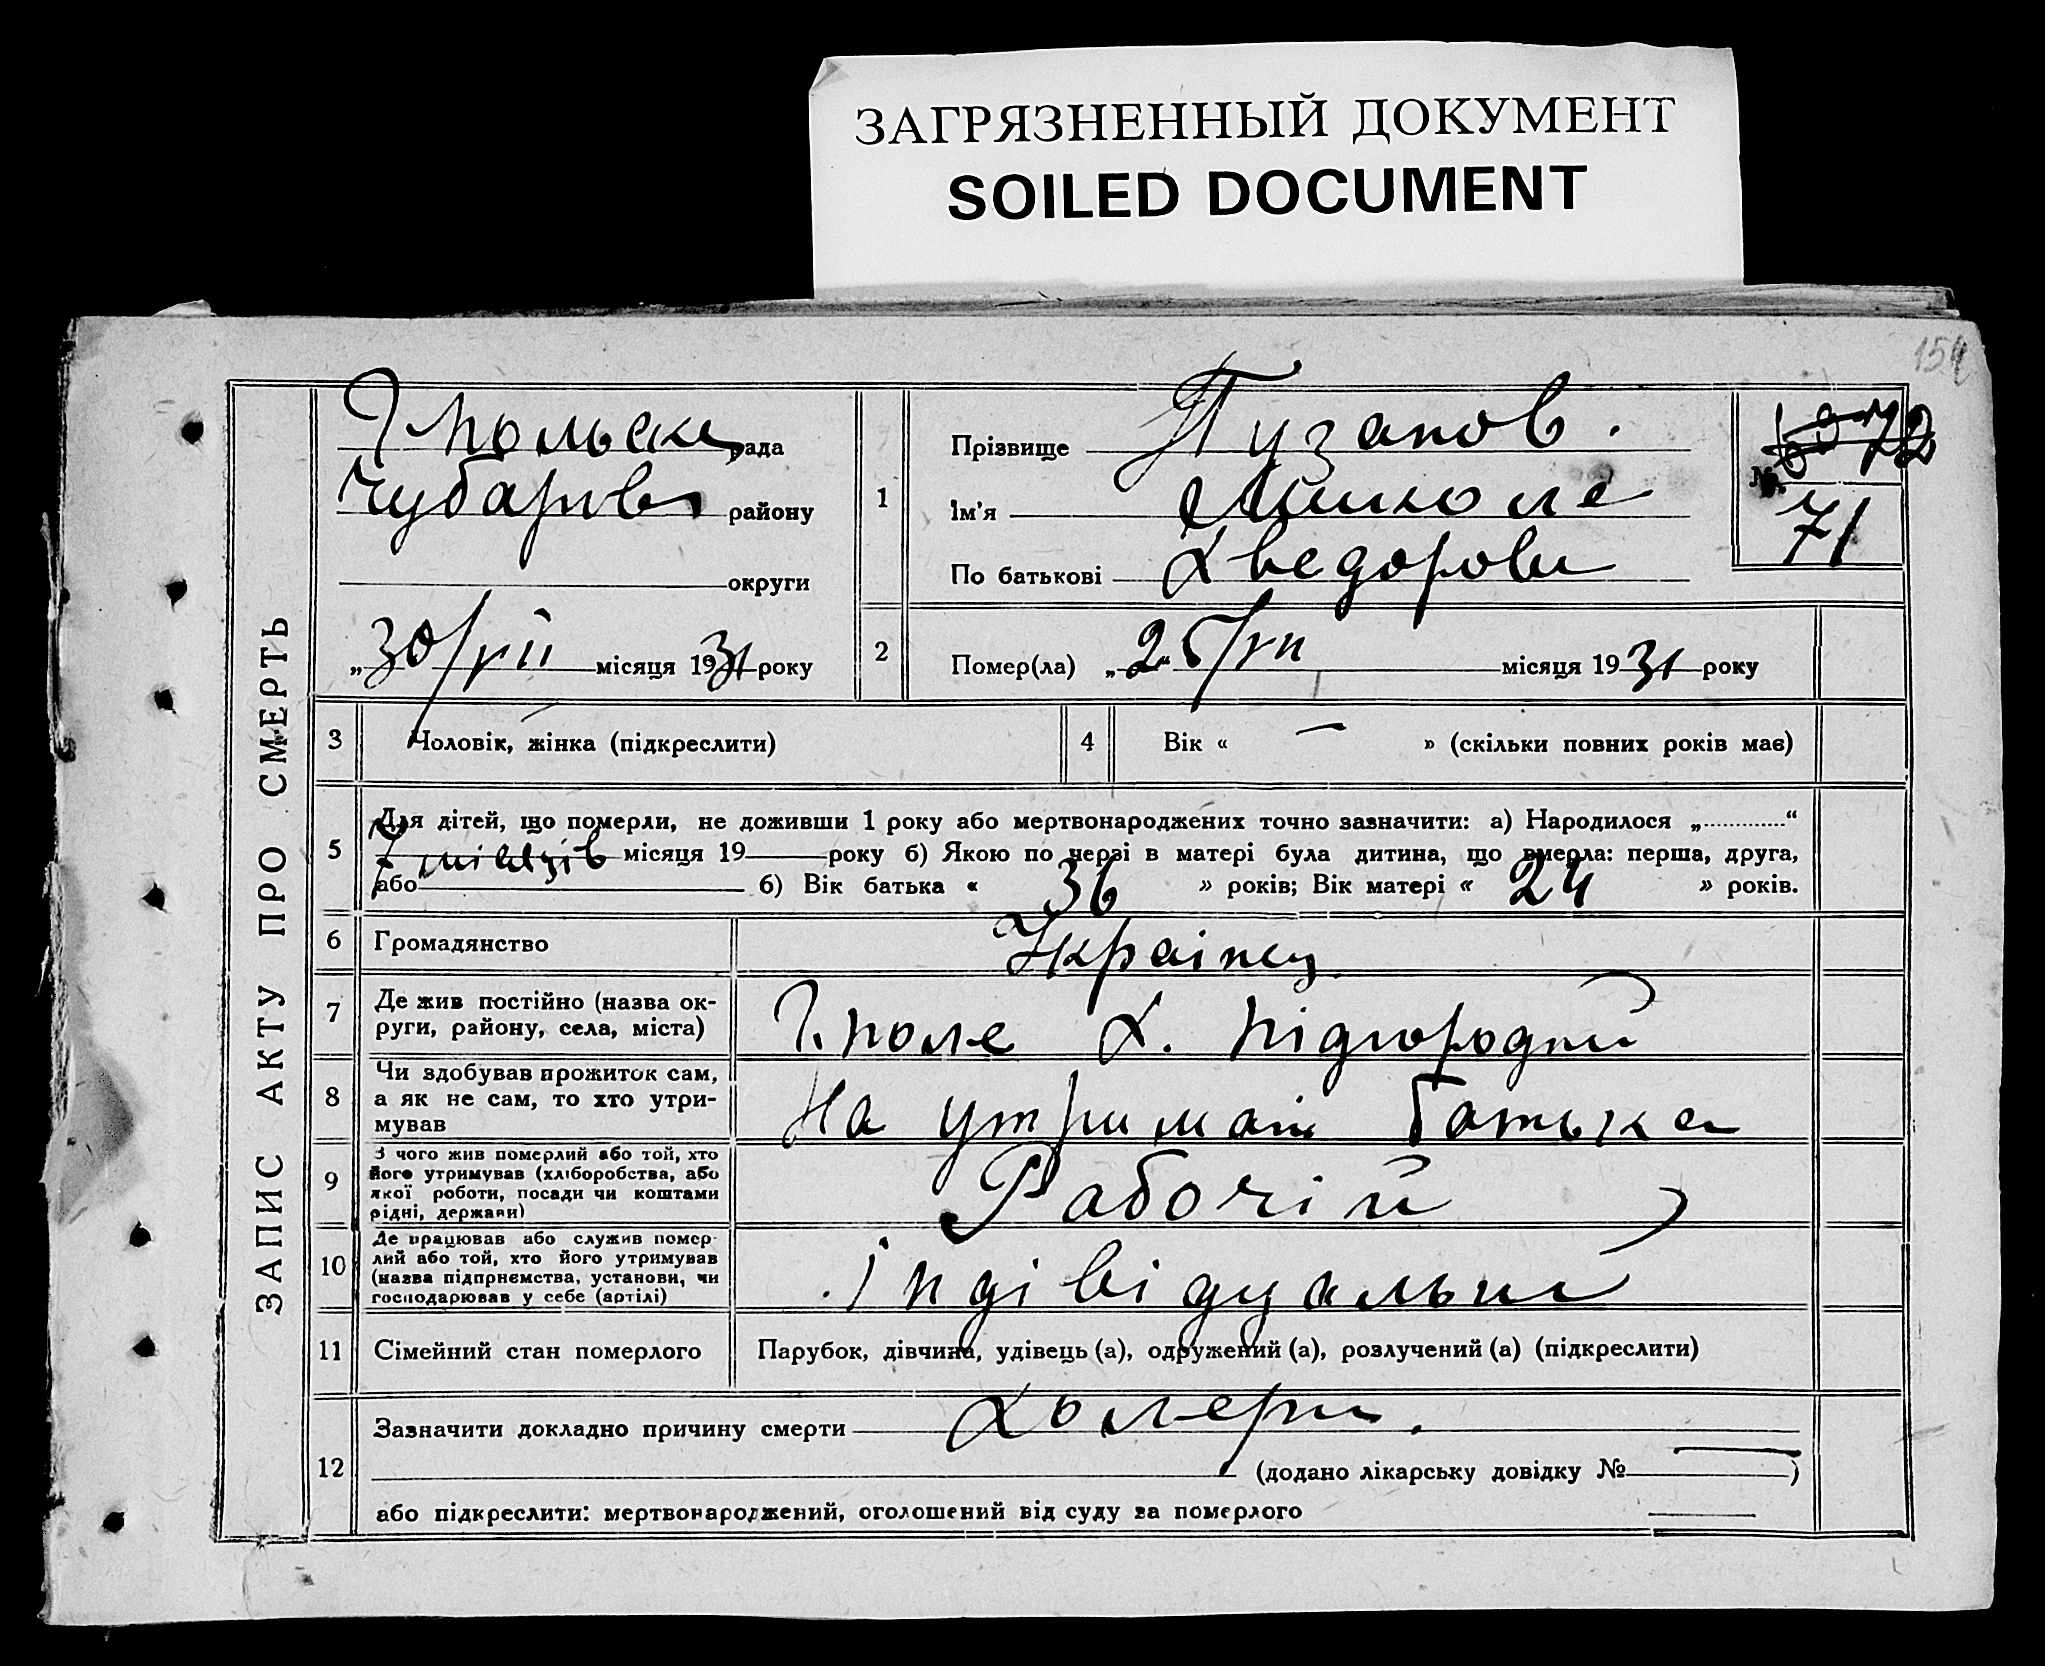 ЗАГРЯЗНЕННЫЙ ДОКУМЕНТ
SOILED DOCUMENT
154
ЗАПИС АКТУ ПРО СМЕРТЬ
Гпольска рада
Чубарівс району
округи
„30/VII місяця 1931 року
1
Прізвище Пузанов.
Ім'я Миколе
По батькові Хведорови
№ 72
71
2
Помер(ла) „25/VII місяця 1931 року
3
Чоловік, жінка (підкреслити)
4
Вік « — » (скільки повних років має)
5
Для дітей, що померли, не доживши 1 року або мертвонароджених точно зазначити: а) Народилося „............“
7 місяців місяця 19 року б) Якою по черзі в матері була дитина, що вмерла: перша, друга,
або б) Вік батька « 36 » років; Вік матері « 24 » років.
6
Громадянство
Украінец
7
Де жив постійно (назва ок-
руги, району, села, міста)
Г. поле Х. Підгородній
8
Чи здобував прожиток сам,
а як не сам, то хто утри-
мував
На утримані батька
9
З чого жив померлий або той, хто
його утримував (хліборобства, або
якої роботи, посади чи коштами
рідні, держави)
Рабочій
10
Де працював або служив помер-
лий або той, хто його утримував
(назва підприємства, установи, чи
господарював у себе (артілі)
Індівідуальни
11
Сімейний стан померлого
Парубок, дівчина, удівець (а), одружений (а), розлучений (а) (підкреслити)
12
Зазначити докладно причину смерти Холери.
(додано лікарську довідку № — )
або підкреслити: мертвонароджений, оголошений від суду за померлого